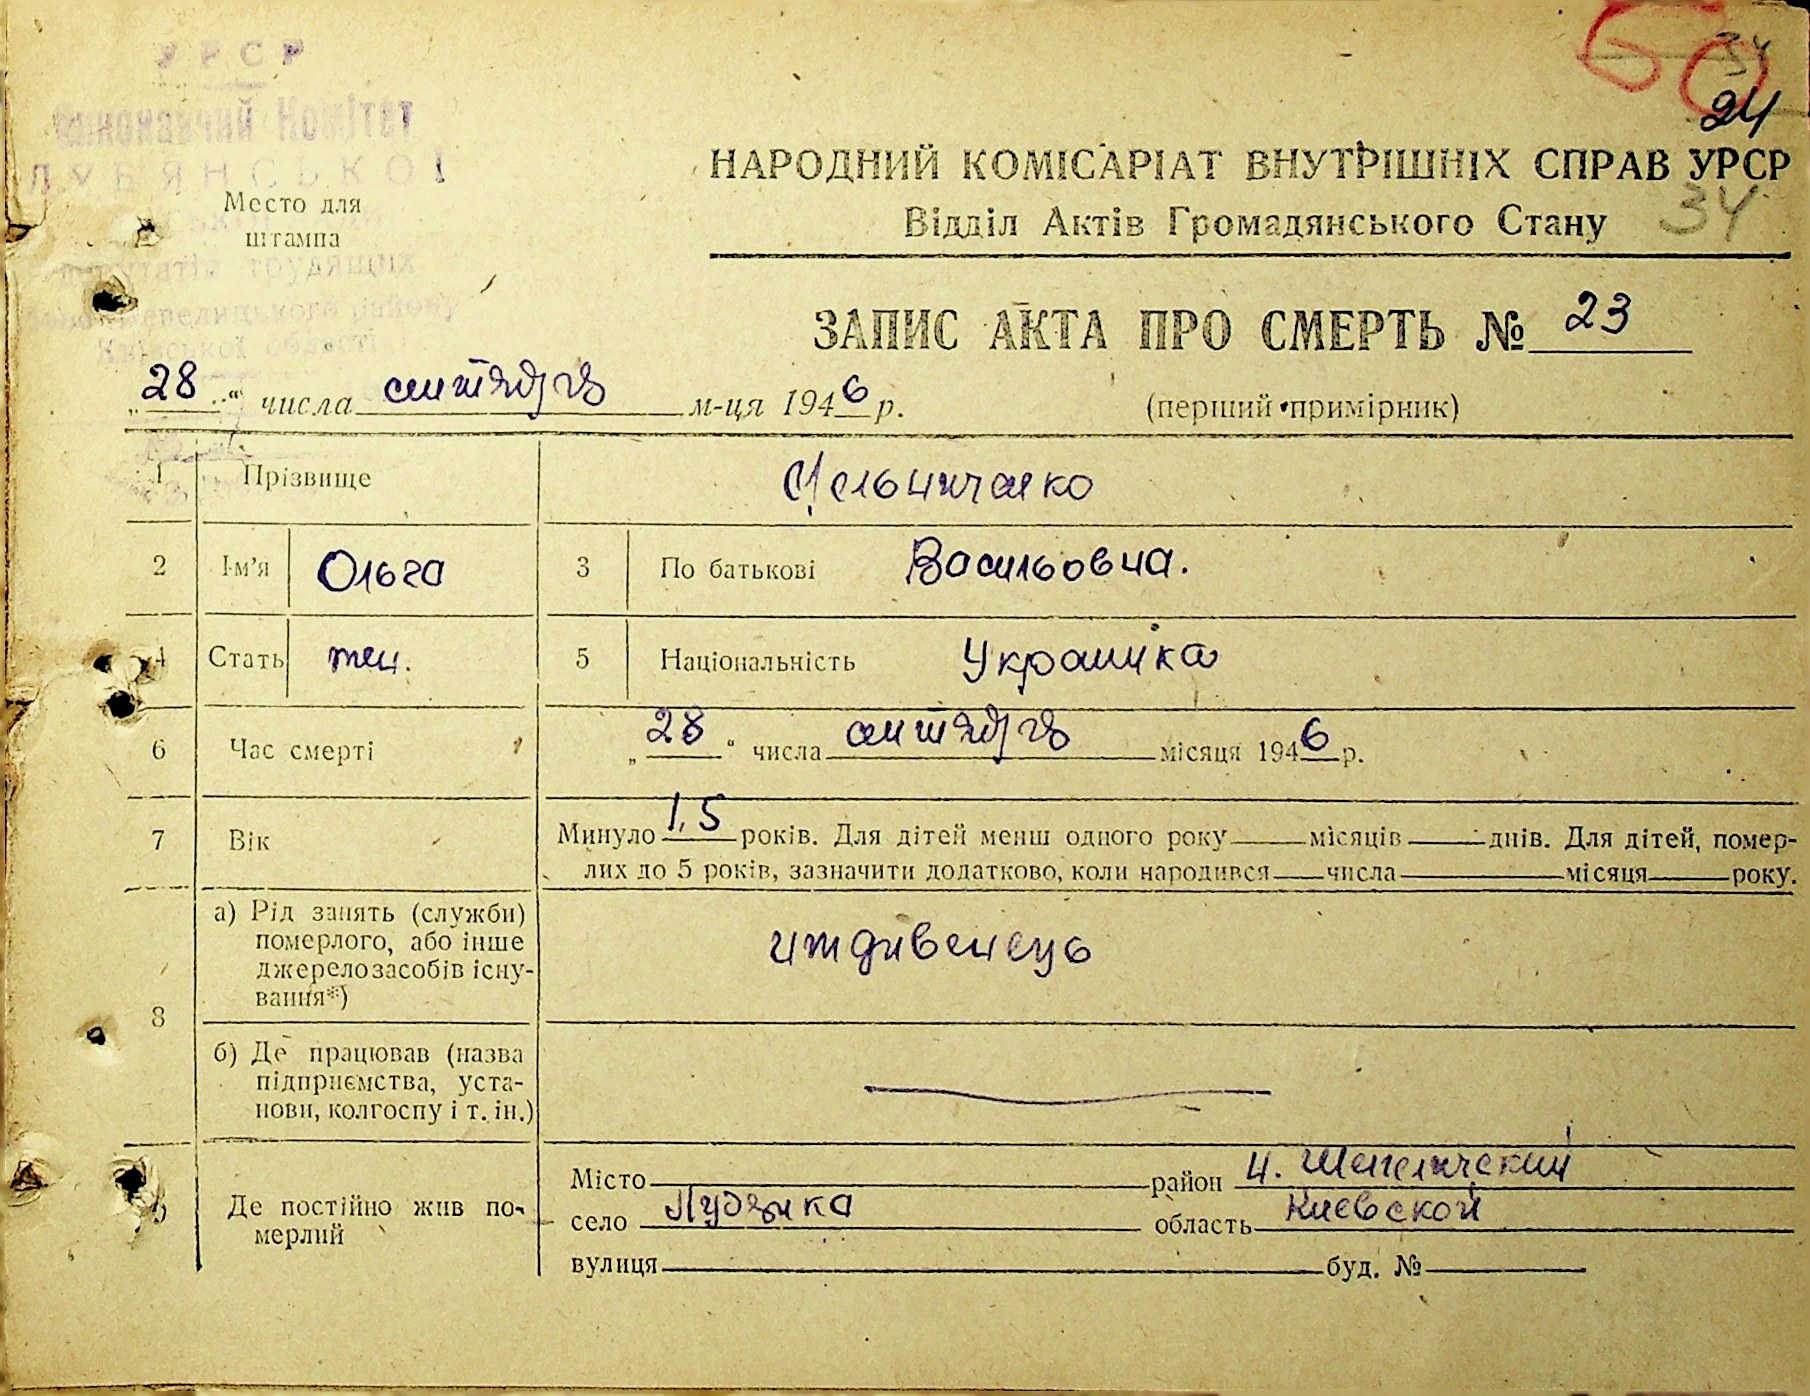 УРСР
Виконавчий Комітет
ЛУБЯНСЬКОЇ
Место для
штампа
депутатів трудящих
Київської області
50
34
24
НАРОДНИЙ КОМІСАРІАТ ВНУТРІШНІХ СПРАВ УРСР
34
Відділ Актів Громадянського Стану
ЗАПИС АКТА ПРО СМЕРТЬ № 23
„28“ числа сентября м-ця 1946 р.
(перший примірник)
1 Прізвище
2 Ім’я Ольга 3 По батькові Васильовна.
4 Стать жен. 5 Національність Українка
6 Час смерті „28“ числа сентября місяця 1946 р.
7 Вік Минуло 1,5 років. Для дітей менш одного року місяців днів. Для дітей, помер-
лих до 5 років, зазначити додатково, коли народився числа місяця року.
8 а) Рід занять (служби)
померлого, або інше
джерело засобів існу-
вання*)
иждивенець
б) Де працював (назва
підприємства, уста-
нови, колгоспу і т. ін.)
9 Де постійно жив по-
мерлий
Місто район Н. Шепеличский
село область Киевской
вулиця буд. №